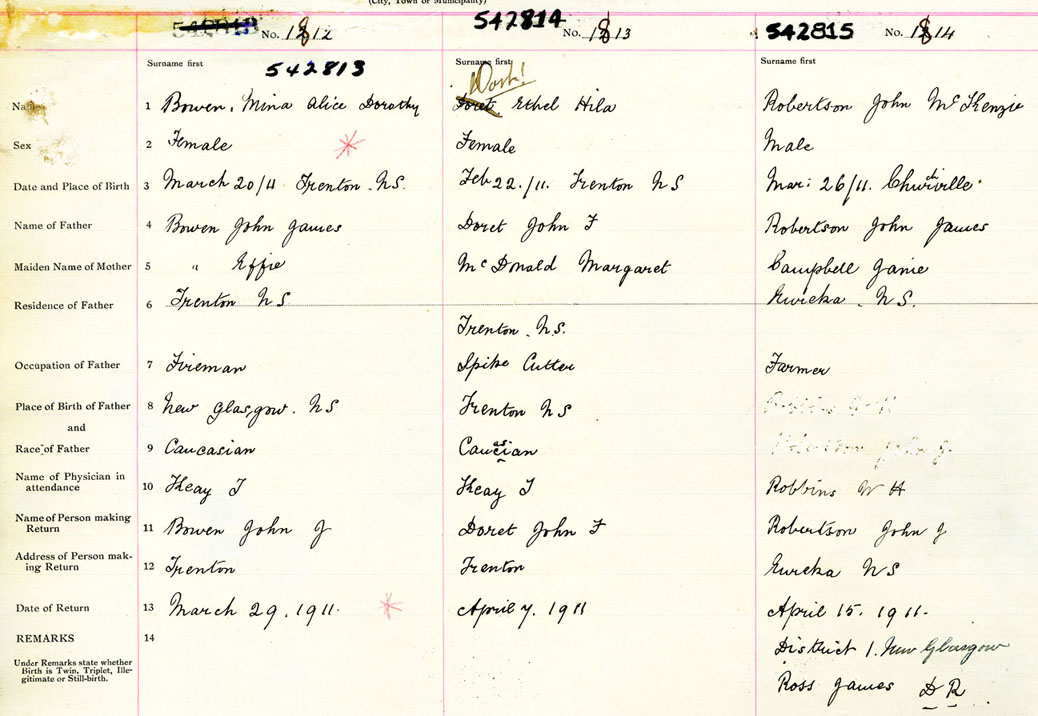 (City, Town or Municipality)
542814
542815
No. 1812
No. 1813
No. 1814
Surname first
542813
Surname first
Surname first
Name 1 Bowen, Mina Alice Dorothy
Doret Ethel Hila
Robertson John McKenzie
Sex 2 Female
Female
Male
Date and Place of Birth 3 March 20/11 Trenton N.S.
Feb 22./11. Trenton NS
Mar: 26/11.
Name of Father 4 Bowen John James
Doret John F
Robertson John James
Maiden Name of Mother 5 " Effie
McDonald Margaret
Campbell Janie
Residence of Father 6 Trenton NS
Trenton. N.S.
Eureka. N.S.
Occupation of Father 7 Fireman
Spike Cutter
Farmer
Place of Birth of Father 8 New Glasgow. NS
Trenton NS
and
Race of Father 9 Caucasian
Caucasian
Name of Physician in
attendance 10 Keay T
Keay T
Robbins W H
Name of Person making
Return 11 Bowen John J
Doret John F
Robertson John J
Address of Person mak-
ing Return 12 Trenton
Trenton
Eureka NS
Date of Return 13 March 29. 1911.
April 7. 1911
April 15. 1911.
REMARKS 14
District 1. New Glasgow
Under Remarks state whether
Birth is Twin, Triplet, Ille-
gitimate or Still-birth.
Ross James D R